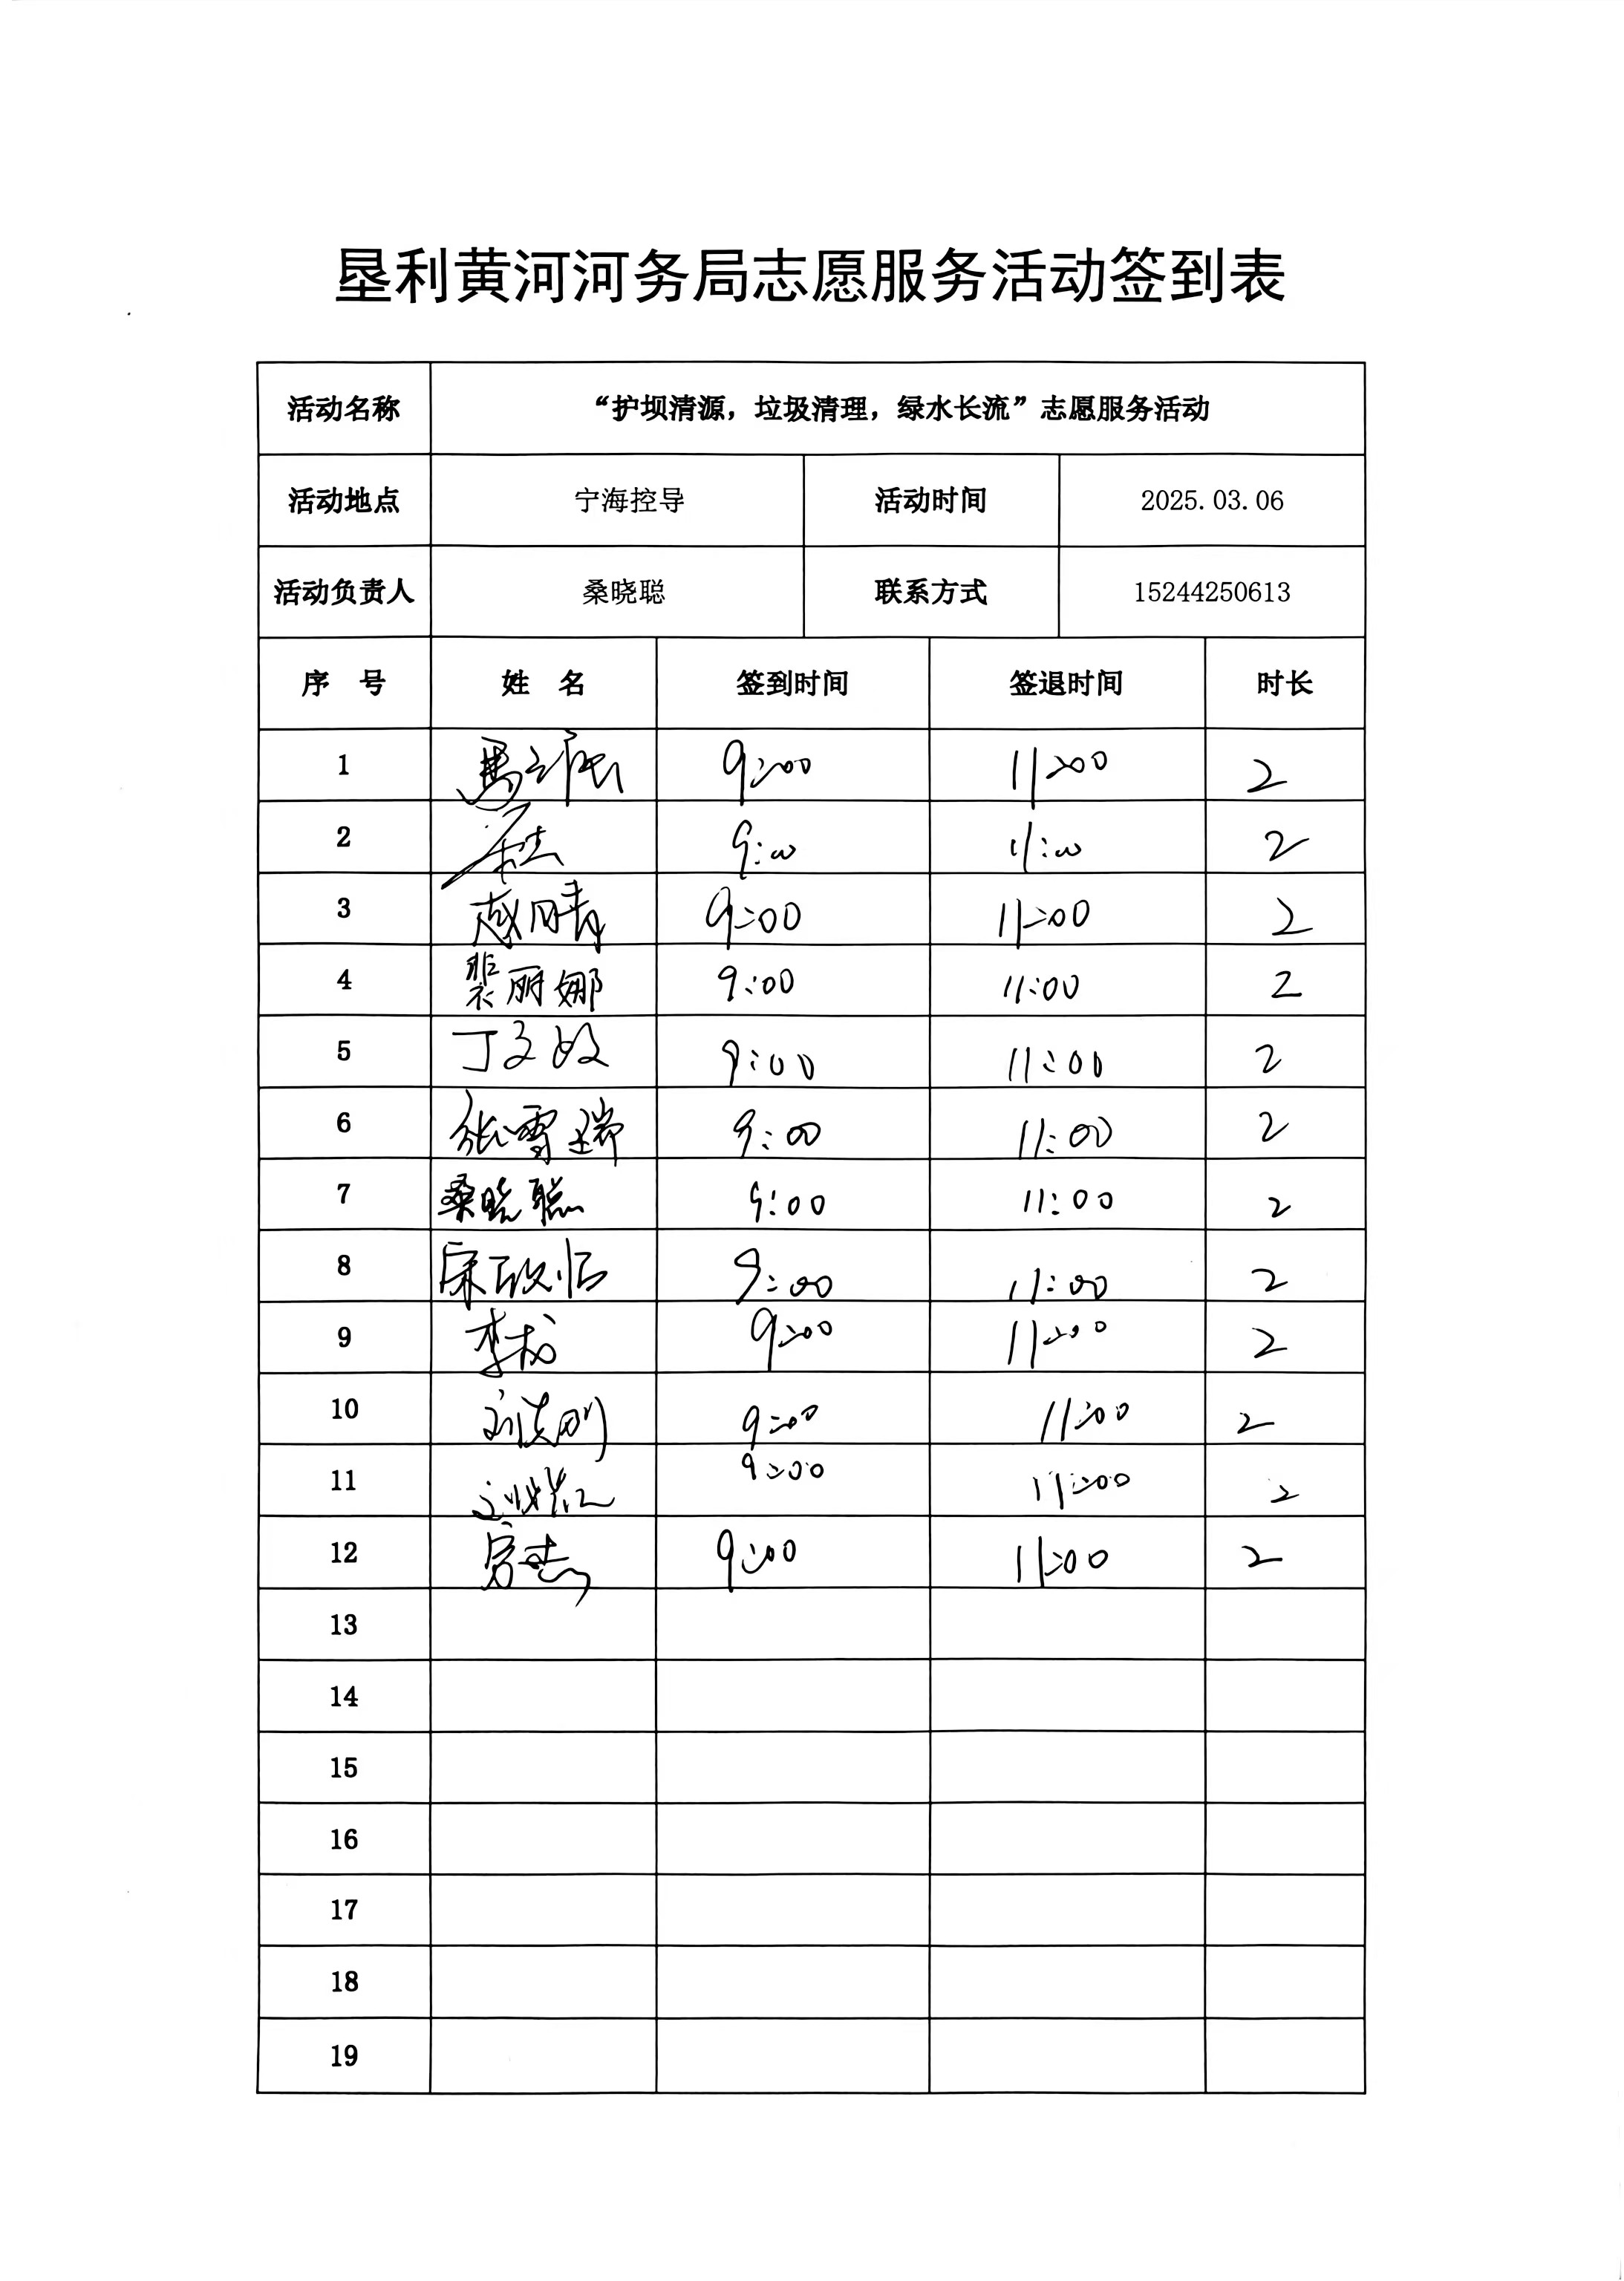 垦利黄河河务局志愿服务活动签到表
活动名称 “护坝清源，垃圾清理，绿水长流”志愿服务活动
活动地点 宁海控导 活动时间 2025.03.06
活动负责人 桑晓聪 联系方式 15244250613
序 号 姓 名 签到时间 签退时间 时长
1 9:00 11:00 2
2 9:00 11:00 2
3 赵晴 9:00 11:00 2
4 裴丽娜 9:00 11:00 2
5 丁文敏 9:00 11:00 2
6 张雪瑞 9:00 11:00 2
7 桑晓聪 9:00 11:00 2
8 宋欣怡 9:00 11:00 2
9 9:00 11:00 2
10 9:00 11:00 2
11 9:00 11:00 2
12 9:00 11:00 2
13
14
15
16
17
18
19